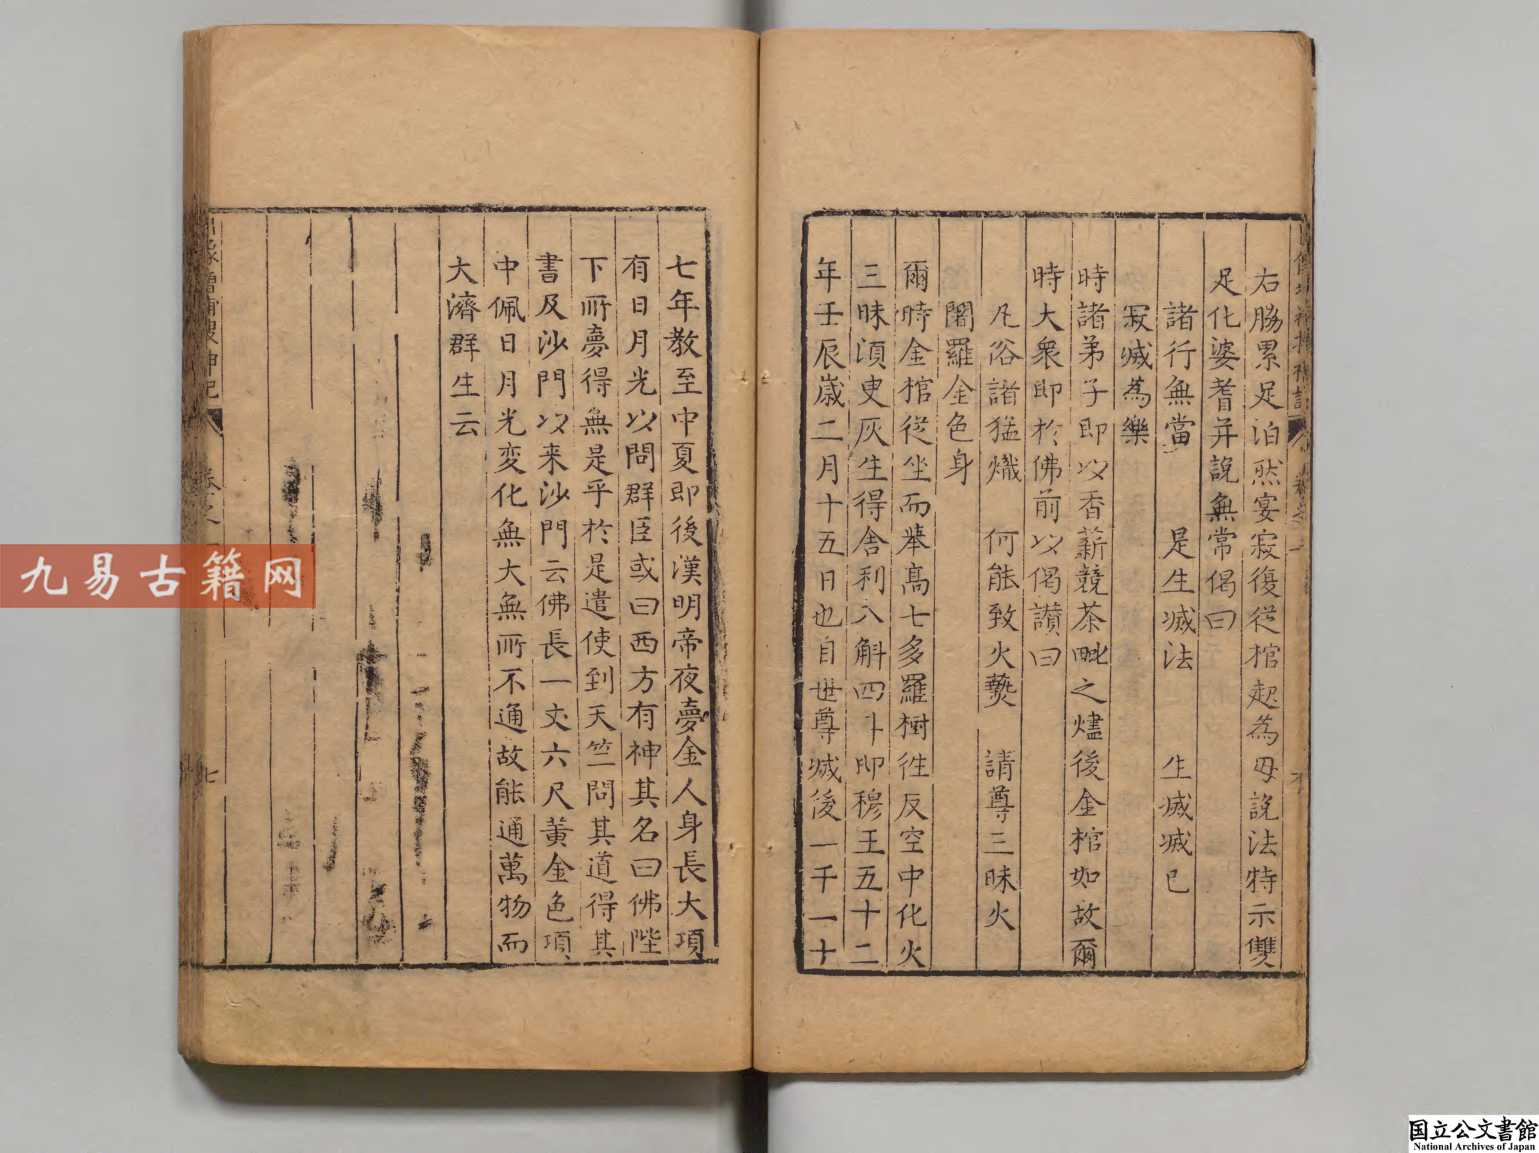 右脇累足泊然宴寂復從棺起為母說法特示雙
足化婆耆并說無常偈曰
諸行無當　是生滅法　生滅滅已
寂滅為樂
時諸弟子即以香薪競茶毗之燼後金棺如故爾
時大衆即於佛前以偈讃曰
凡俗諸猛熾　何能致火爇　請尊三昧火
闍羅金色身
爾時金棺從坐而舉高七多羅樹徃反空中化火
三昧湏臾灰生得舍利八斛四斗即穆王五十二
年壬辰歲二月十五日也自世尊滅後一千一十
七年教至中夏即後漢明帝夜夢金人身長大項
有日月光以問群臣或曰西方有神其名曰佛陛
下所夢得無是乎於是遣使到天竺問其道得其
書及沙門以来沙門云佛長一丈六尺黃金色項
中佩日月光变化無大無所不通故能通萬物而
大濟群生云
增補搜神記
卷之一
七
九易古籍网
国立公文書館
National Archives of Japan